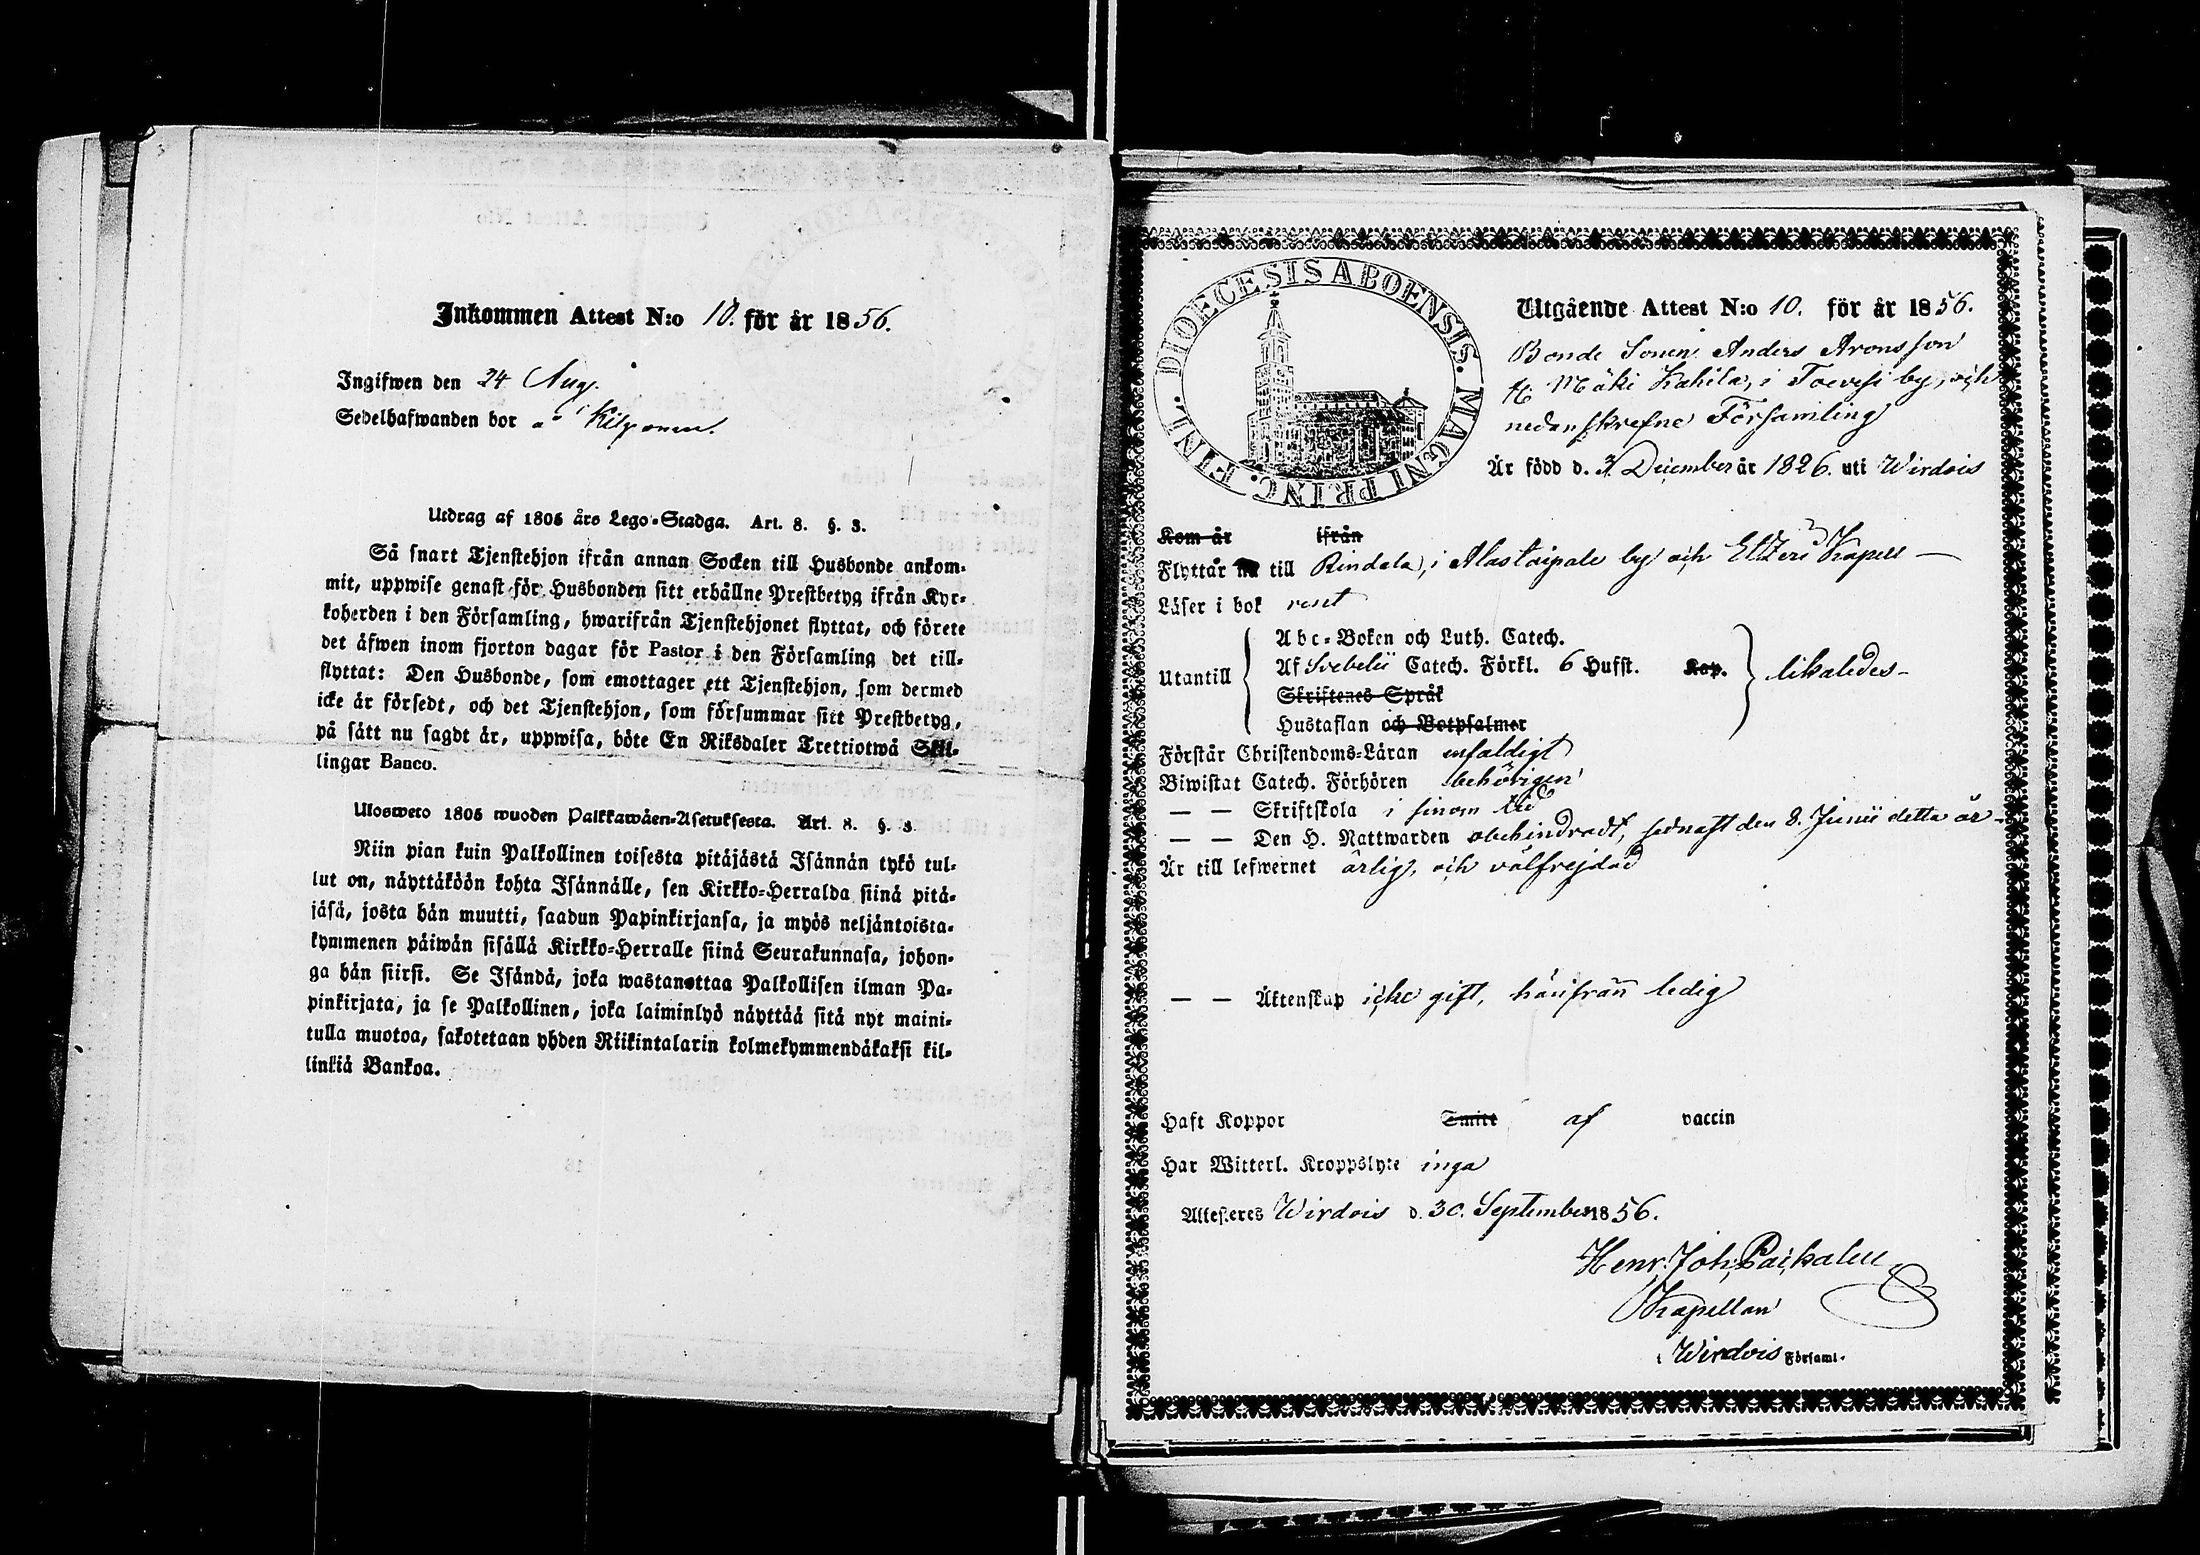 Inkommen Attest N:o 10. för år 1856.
Ingifwen den 24 Aug.
Sedelhafwanden bor å Kilponen.
Utdrag af 1805 års Lego-Stadga. Art. 8. §. 3.
Så snart Tjenstehjon ifrån annan Socken till Husbonde ankom-
mit, uppwise genast för Husbonden sitt erhållne Prestbetyg ifrån Kyr-
koherden i den Församling, hwarifrån Tjenstehjonet flyttat, och förete
det äfwen inom fjorton dagar för Pastor i den Församling det till-
flyttat: Den Husbonde, som emottager ett Tjenstehjon, som dermed
icke är försedt, och det Tjenstehjon, som försummar sitt Prestbetyg,
på sätt nu sagdt är, uppwisa, böte En Riksdaler Trettiotwå Skil-
lingar Banco.
Ulosweto 1805 wuoden Palkkawäen-Asetuksesta. Art. 8. §. 3.
Niin pian kuin Palkollinen toisesta pitäjästä Isännän tykö tul-
lut on, näyttäköön kohta Isännälle, sen Kirkko-Herralda siinä pitä-
jäsä, josta hän muutti, saadun Papinkirjansa, ja myös neljäntoista-
kymmenen päiwän sisällä Kirkko-Herralle siinä Seurakunnasa, johon-
ga hän siirsi. Se Isändä, joka wastanottaa Palkollisen ilman Pa-
pinkirjata, ja se Palkollinen, joka laiminlyö näyttää sitä nyt maini-
tulla muotoa, sakotetaan yhden Riikintalarin kolmekymmendäkaksi kil-
linkiä Bankoa.
DIOECESIS ABOENSIS. MAGNI PRINC. FINL.
Utgående Attest N:o 10. för år 1856.
Bonde Sonen Anders Aronsson
Mäki Kahila, i Toevesi by, och
nedanskrefne Församling
Är född d. 3 December år 1826. uti Wirdois
Kom år ifrån
Flyttar nu till Rindala, i Alastaipale by och Etzeri Kapell —
Läser i bok rent
Abc-Boken och Luth. Catech.
Utantill Af Svebelii Catech. Förkl. 6 Hufst. Kap. likaledes -
Skriftenes Språk
Hustaflan och Botpsalmer
Förstår Christendoms-Läran enfaldigt
Biwistat Catech. Förhören behörigen
— — Skriftskola i sinom tid
— — Den H. Nattwarden obehindradt, sednast den 8. Junii detta år -
Är till lefwernet ärlig, och välfrejdad
— — Äktenskap icke gift, härifrån ledig
Haft Koppor Smitt af vaccin
Har Witterl. Kroppslyte inga
Attesteres Wirdois d. 30. September 1856.
Henr. Joh. Paikalen
Kapellan
i Wirdois Församl.